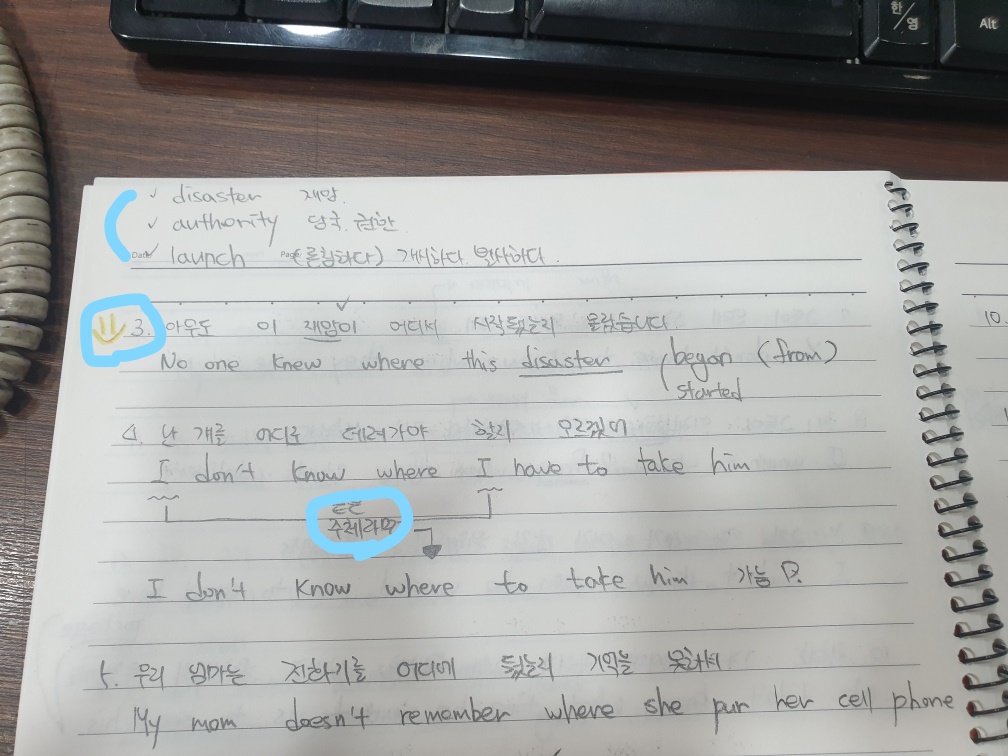 한/영
Alt
✓ disaster 재앙.
✓ authority 당국. 권한
Date ✓ launch Page (론칭하다) 개시하다. 발사하다.
3. 아무도 이 재앙이 어디서 시작됐는지 몰랐습니다
10.
No one knew where this disaster began (from)
started
4. 난 걔를 어디로 데려가야 할지 모르겠어
I don't know where I have to take him
같은
주체라면
I don't know where to take him 가능 D.
5. 우리 엄마는 전화기를 어디에 뒀는지 기억을 못하셔.
My mom doesn't remember where she pur her cell phone